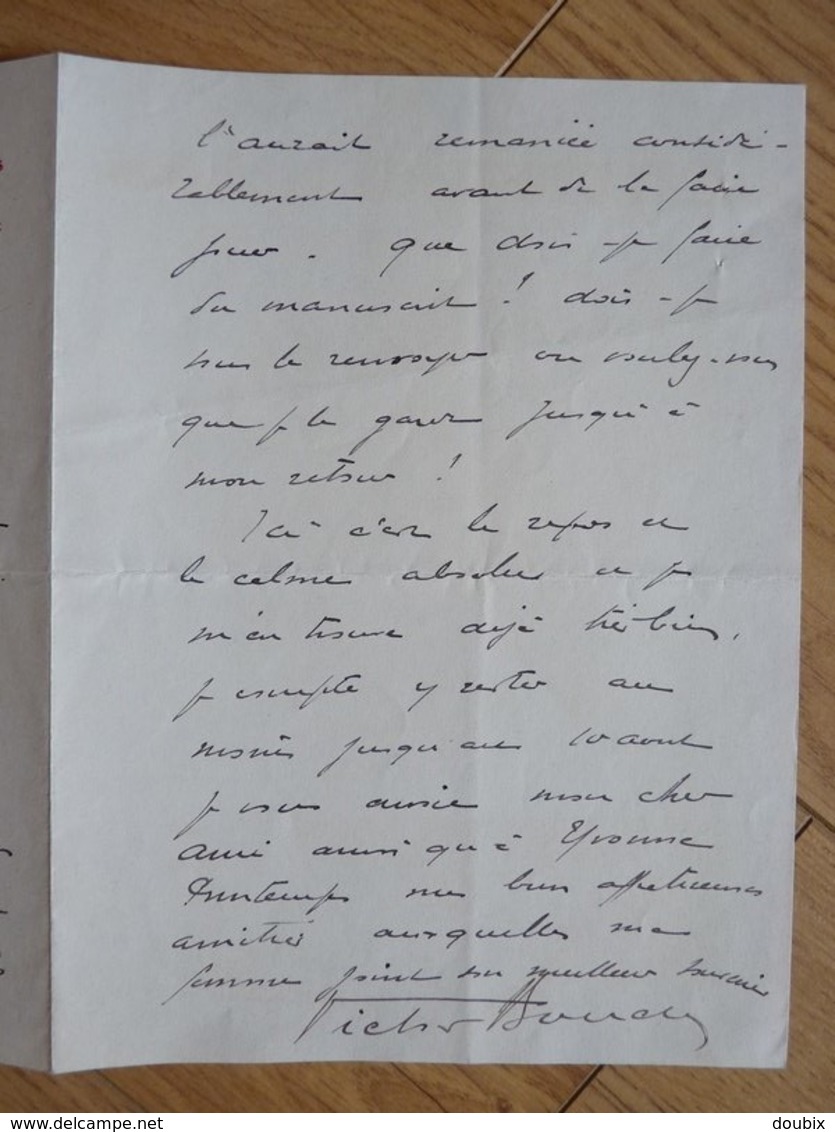 l'aurait remaniée considé-
rablement avant de la faire
jouer. Que dois-je faire
du manuscrit ! dois-je
vous le renvoyer ou voulez-vous
que je le garde jusqu'à
mon retour !
Ici c'est le repos et
le calme absolu et je
m'en trouve déjà très bien.
Je compte y rester au
moins jusqu'au 10 aout
Je vous envoie mon cher
Ami ainsi qu'à Yvonne
Printemps mes bien affectueuses
amitiés auxquelles ma
femme joint son meilleur souvenir
Victor Boucher
delcampe.net
doubix